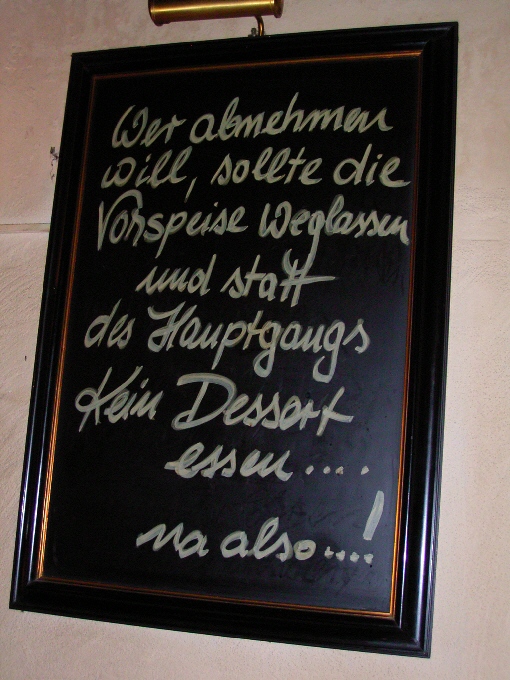 Wer abnehmen
will, sollte die
Vorspeise weglassen
und statt
des Hauptgangs
Kein Dessert
essen....
na also....!